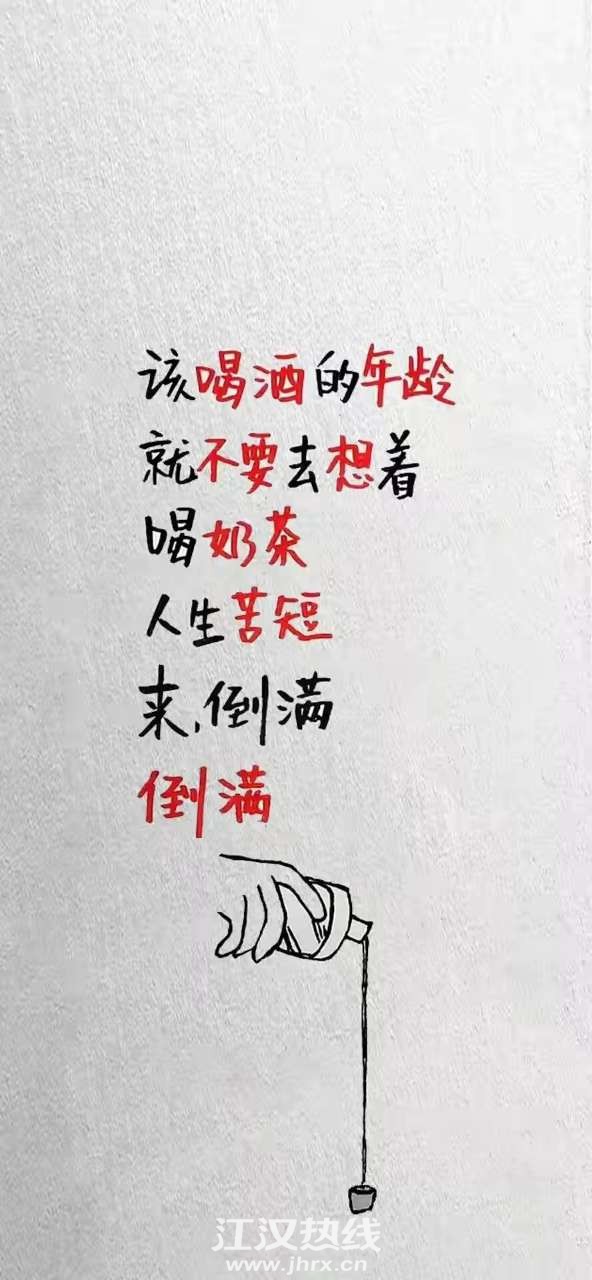 该喝酒的年龄
就不要去想着
喝奶茶
人生苦短
来,倒满
倒满
江汉热线
www.jhrx.cn